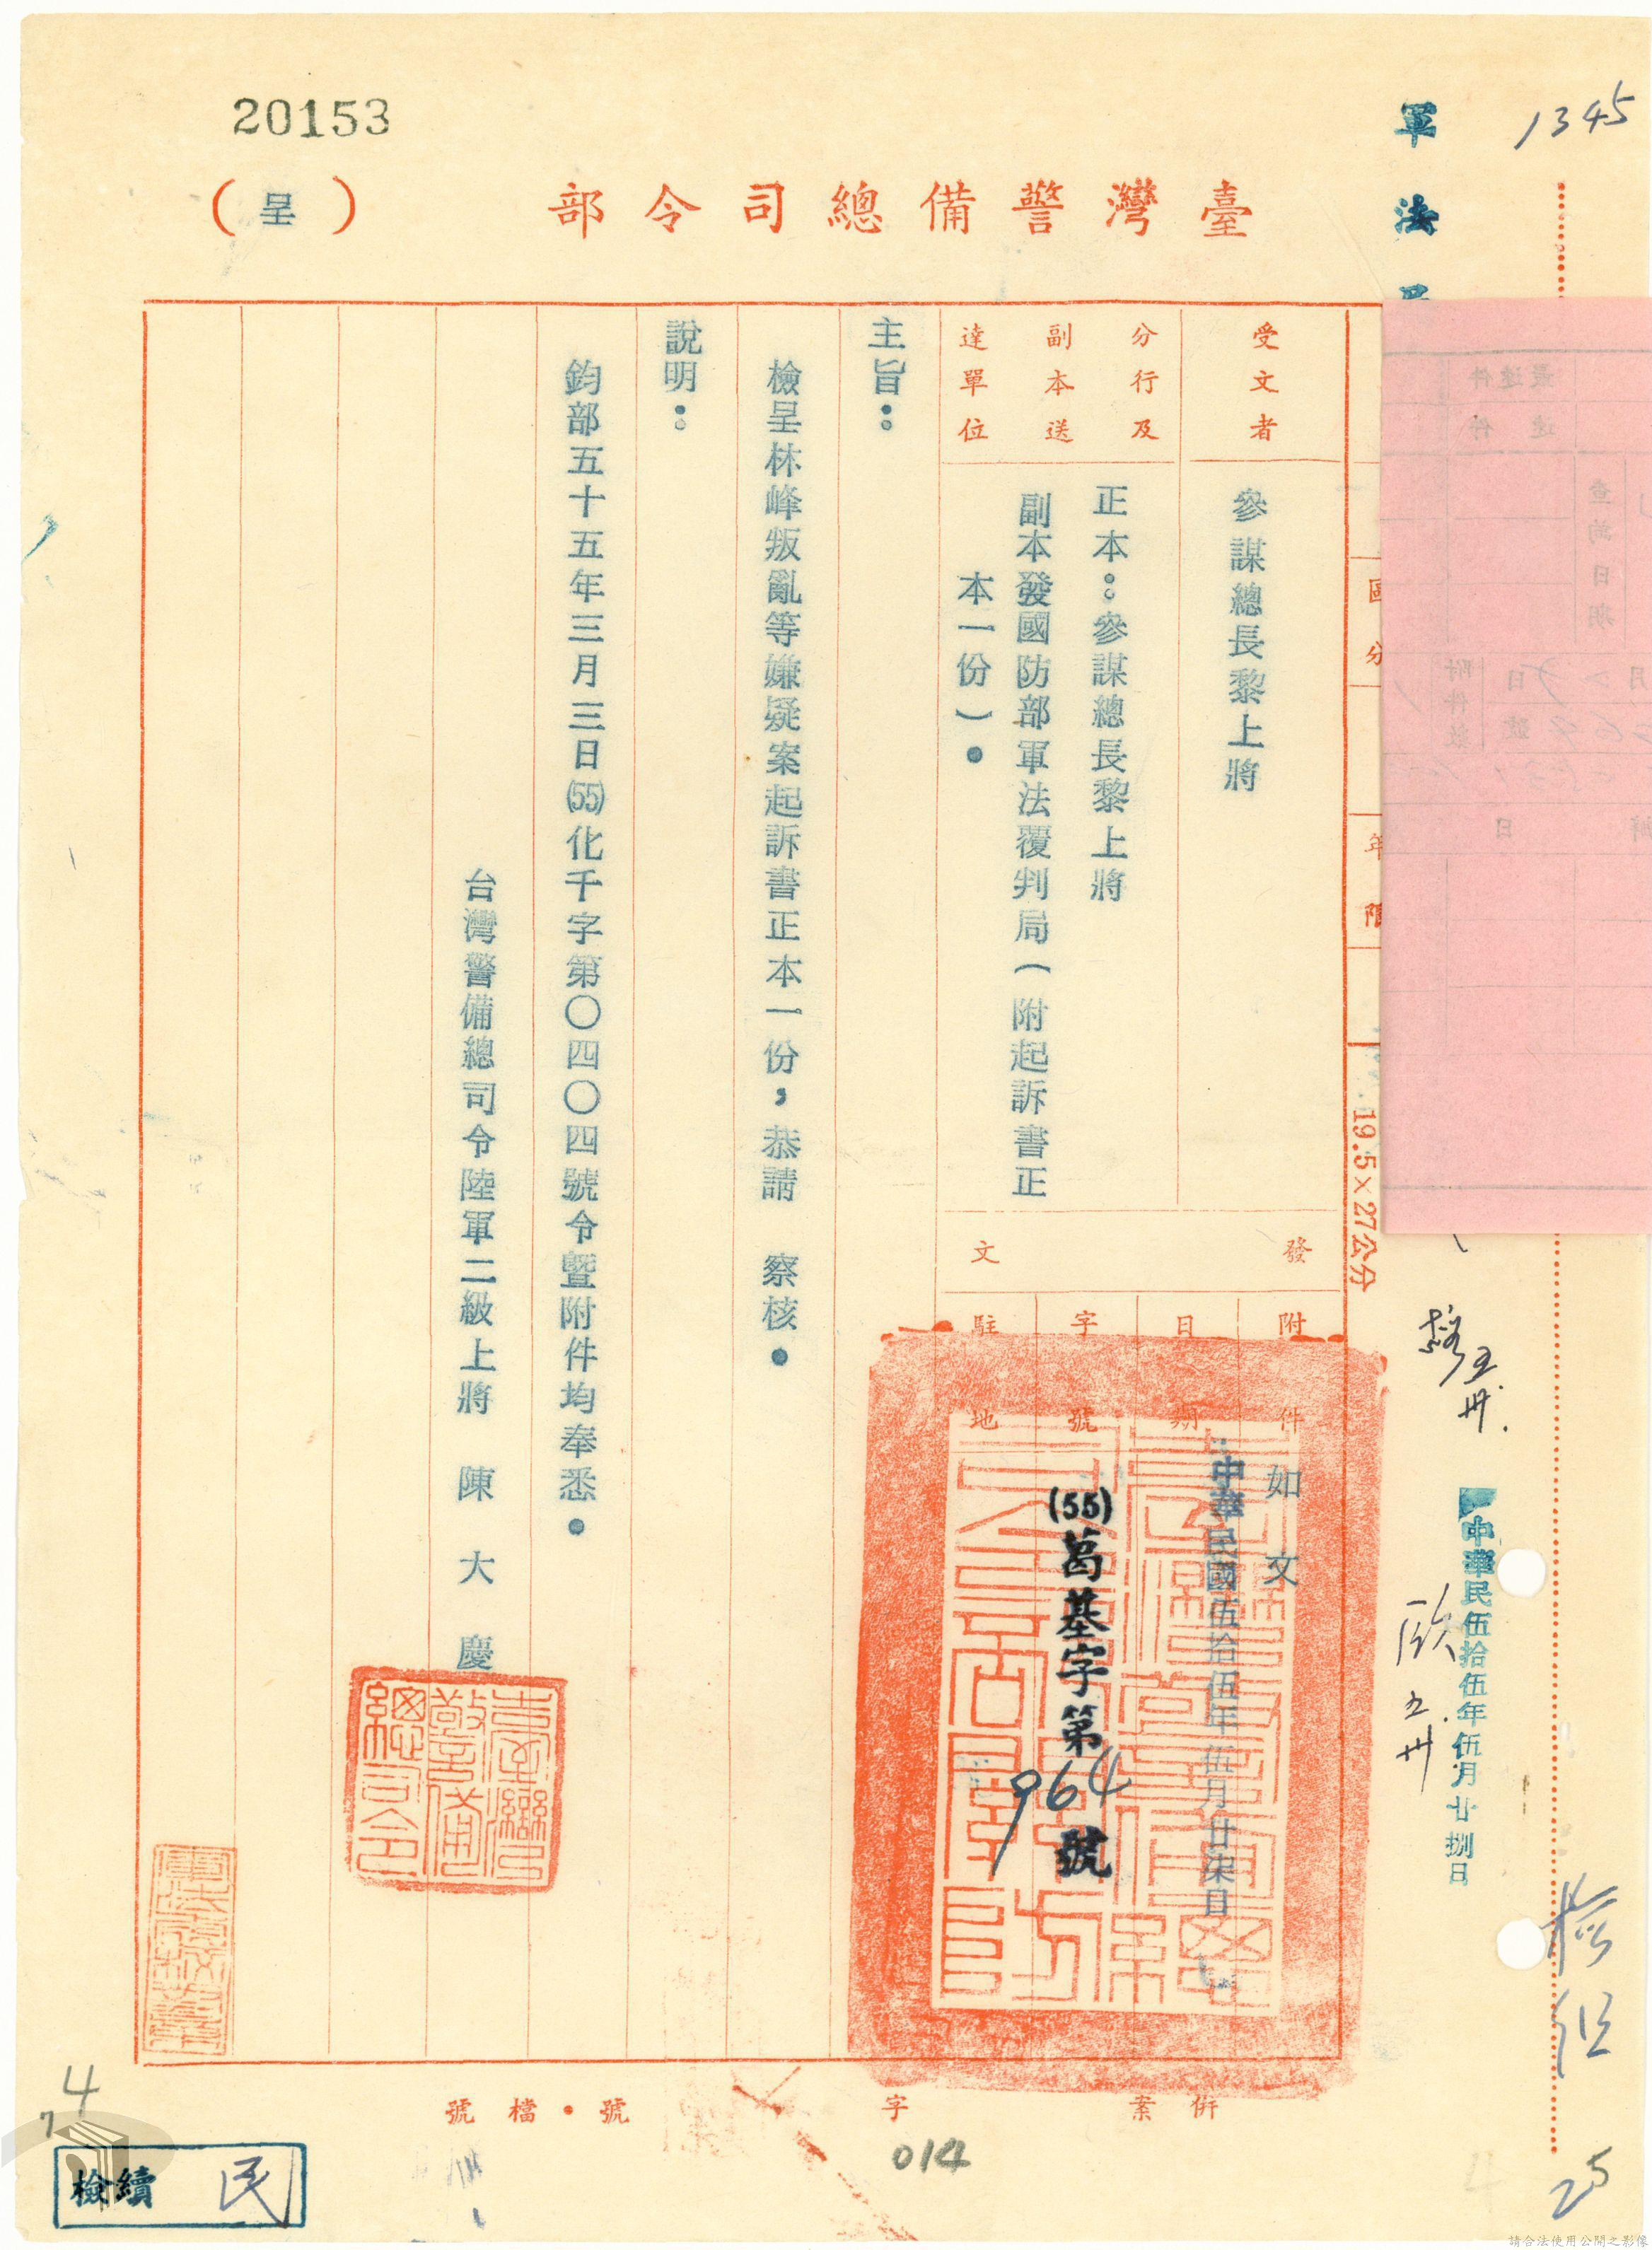 20153
1345
軍法
臺灣警備總司令部
(呈)
受文者
參謀總長黎上將
分行及副本送達單位
正本：參謀總長黎上將
副本發國防部軍法覆判局（附起訴書正
本一份）。
發文
附件
如文
日期
中華民國伍拾伍年伍月廿柒日
字號
(55)葛基字第964號
駐地
主旨：
檢呈林峰叛亂等嫌疑案起訴書正本一份，恭請　察核。
說明：
鈞部五十五年三月三日(55)化千字第〇四〇四號令暨附件均奉悉。
台灣警備總司令陸軍二級上將　陳大慶
臺灣警備總司令
年限
19.5×27公分
最速件
速件
查詢日期
附件數
中華民伍拾伍年伍月廿捌日
檢
25
併案
字
號・檔號
014
4
7
檢續 民
請合法使用公開之影像